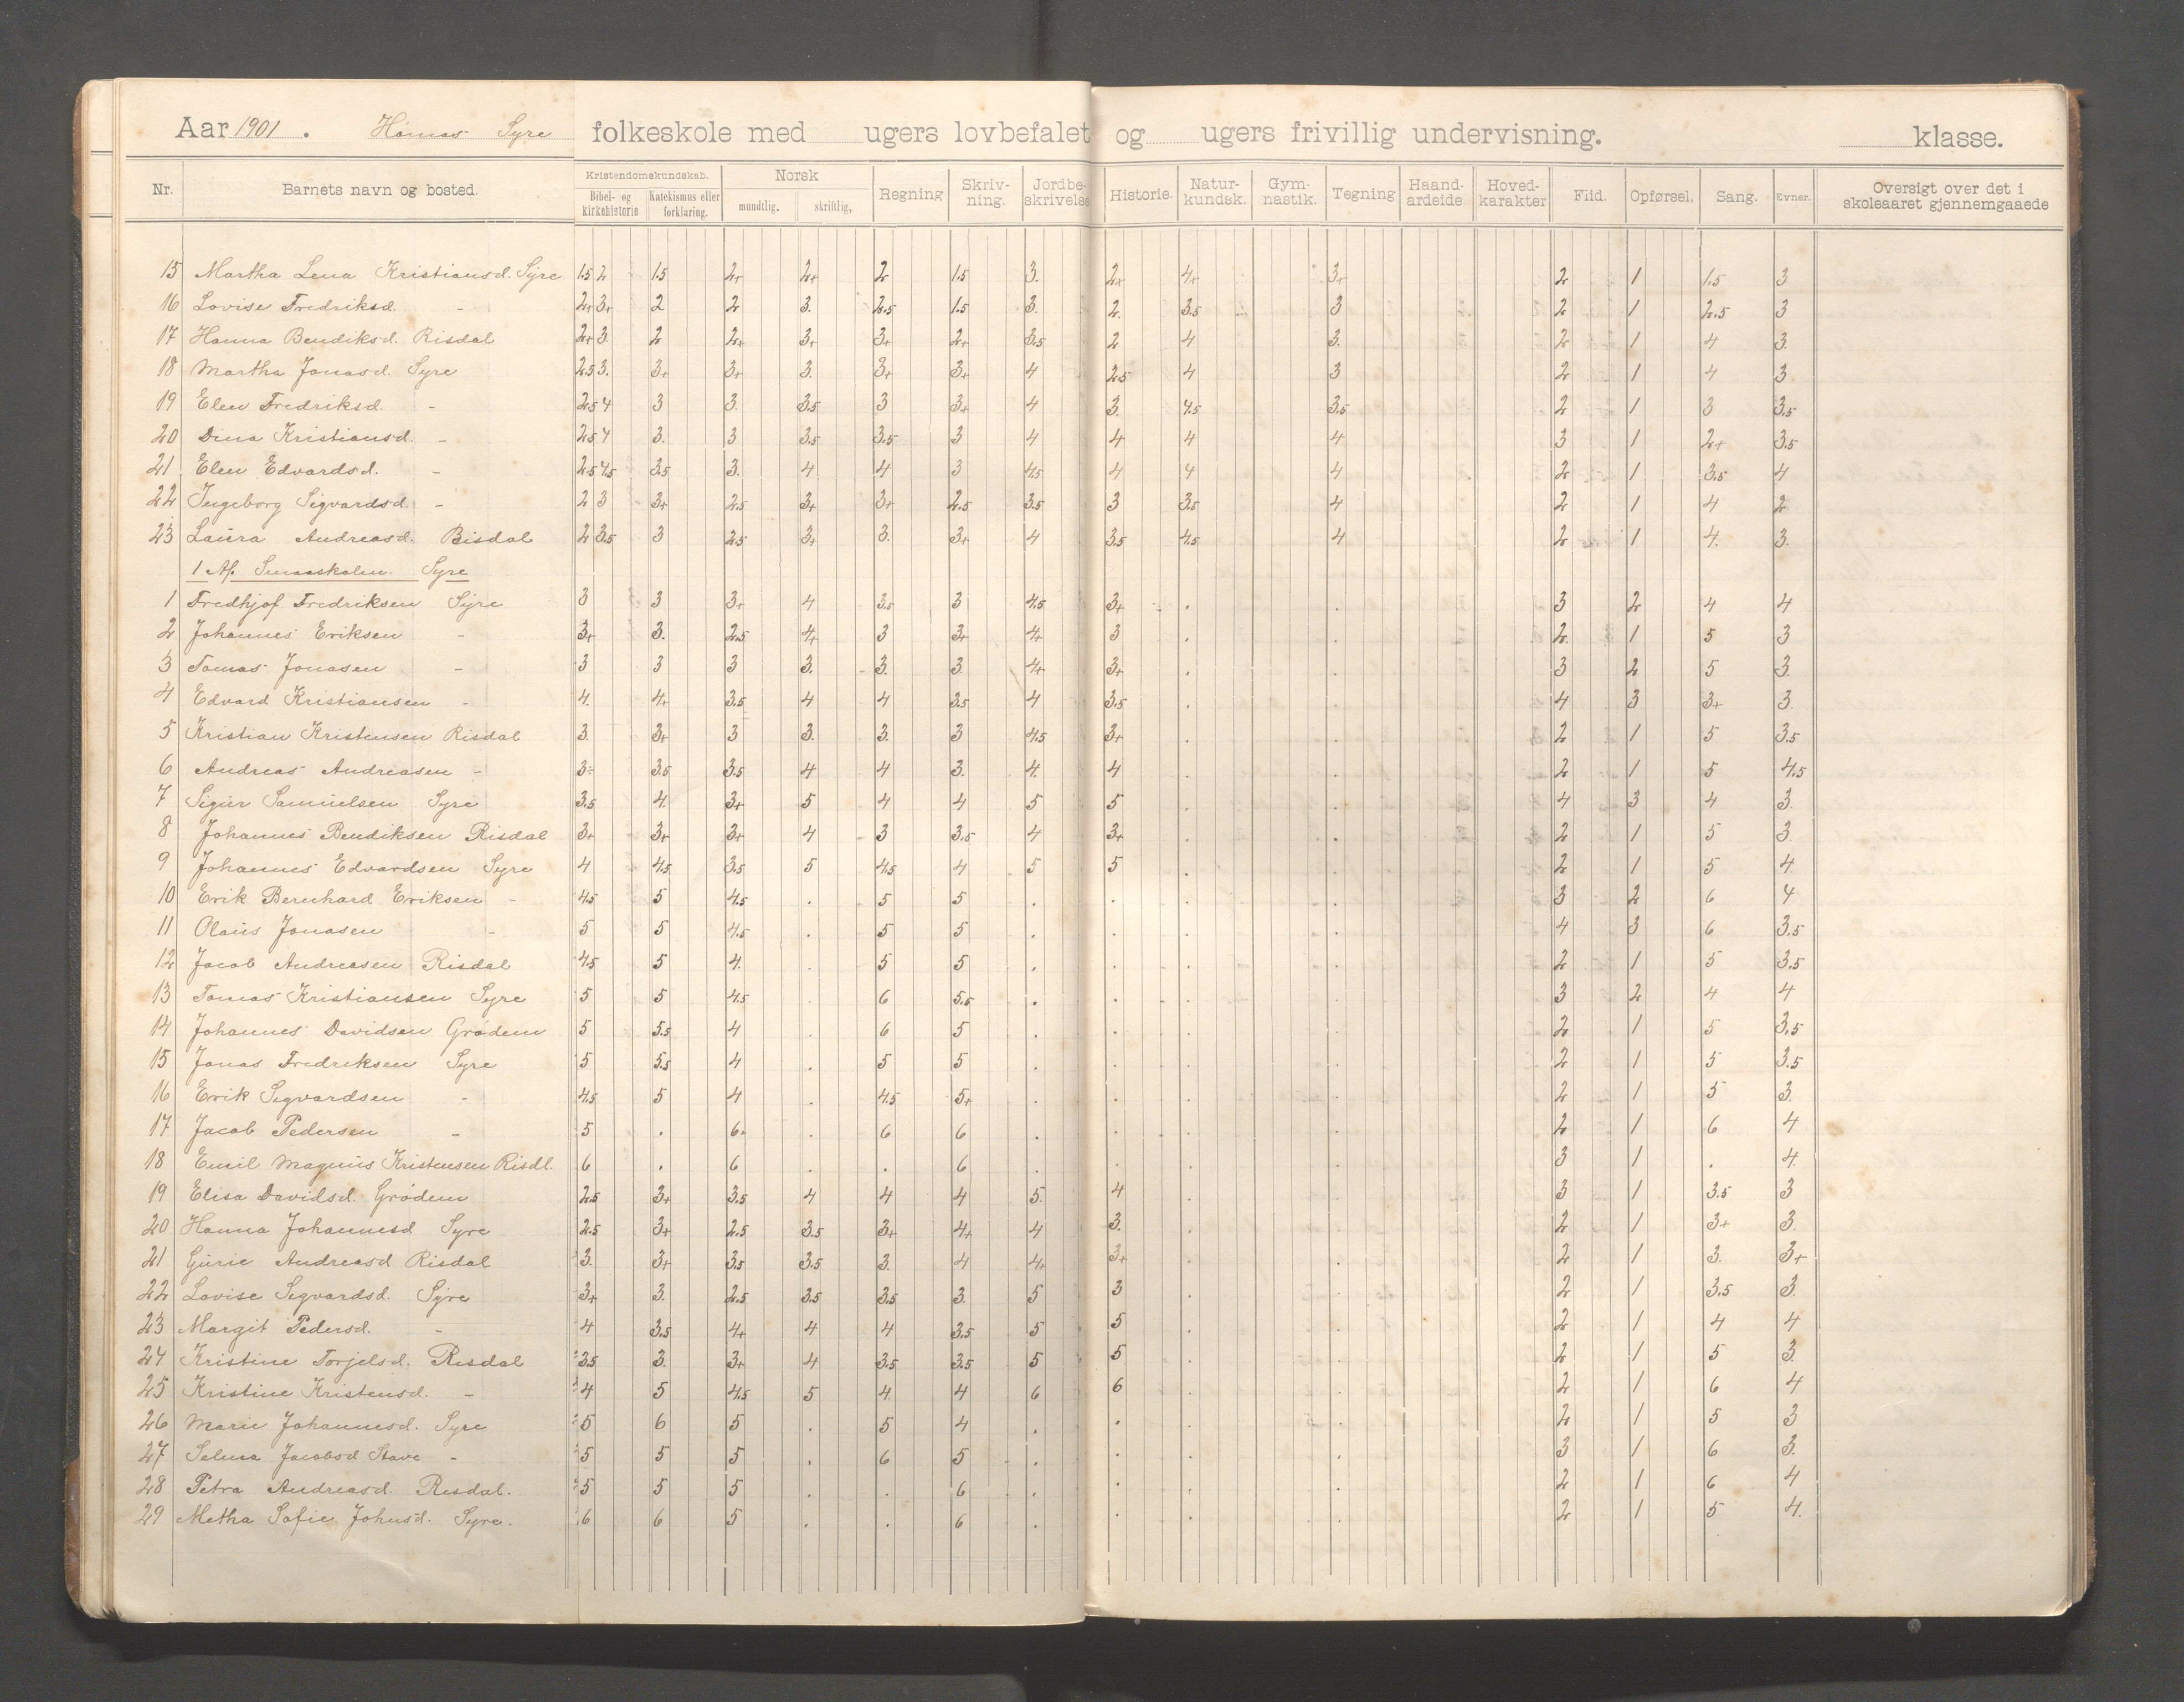 Aar 1901. Syre folkeskole med ugers lovbefalet og ugers frivillig undervisning. klasse.
Nr. Barnets navn og bosted. Kristendomskundskab. Bibel- og kirkehistorie Katekismus eller forklaring. Norsk mundtlig. skriftlig, Regning Skriv-ning. Jordbe-skrivelse Historie. Natur-kundsk. Gym-nastik. Tegning Haand-ardeide Hoved-karakter Flid. Opførsel. Sang. Evner. Oversigt over det i skoleaaret gjennemgaaede
15 Martha Lena Kristiansd. Syre 1.5 2 1.5 2+ 2+ 2 1.5 3. 2+ 4+ 3+ 2 1 1.5 3
16 Lovise Fredriksd. - 2+ 3+ 2 2 3. 2.5 1.5 3. 2. 3.5 3 2 1 2.5 3
17 Hanna Bendiksd. Risdal 2+ 3. 2 2+ 3+ 3+ 2+ 3.5 2 4 3. 2 1 4 3.
18 Martha Jonasd. Syre 2.5 3. 3+ 3+ 3. 3+ 3+ 4 2.5 4 3 2 1 4 3
19 Elen Fredriksd. - 2.5 4 3 3. 3.5 3 3+ 4 3. 4.5 3.5 2 1 3 3.5
20 Dina Kristiansd. - 2.5 4 3. 3 3.5 3.5 3 4 4 4 4 3 1 2+ 3.5
21 Elen Edvardsd. - 2.5 4.5 3.5 3. 4 4 3 4.5 4 4 4 2 1 3.5 4
22 Ingeborg Sigvardsd. - 2 3 3+ 2.5 3+ 3+ 2.5 3.5 3 3.5 4 2 1 4 2
23 Laura Andreasd. Risdal 2 3.5 3 2.5 3+ 3. 3+ 4 3.5 4.5 4 2 1 4. 3.
1 Af. Smaaskolen. Syre
1 Fredhjof Fredriksen Syre 3 3 3+ 4 3.5 3 4.5 3+ . . 3 2 4 4
2 Johannes Eriksen - 3+ 3. 2.5 4+ 3 3+ 4+ 3 . . 2. 1 5 3
3 Tomas Jonasen - 3 3 3 3. 3. 3. 4+ 3+ . . 3 2 5 3.
4 Edvard Kristiansen - 4. 4+ 3.5 4 4 3.5 4 3.5 . . 4 3 3+ 3
5 Kristian Kristensen Risdal 3. 3+ 3 3. 3. 3 4.5 3+ . . 2 1 5 3.5
6 Andreas Andreasen - 3÷ 3.5 3.5 4 4 3. 4. 4 . . 2 1 5 4.5
7 Sigur Samuelsen Syre 3.5 4. 3+ 5 4 4 5 5 . . 4 3 4 3.
8 Johannes Bendiksen Risdal 3+ 3+ 3+ 4 3 3.5 4 3+ . . 2 1 5 3
9 Johannes Edvardsen Syre 4 4.5 3.5 5 4.5 4 5 5 . . 2 1 5 4.
10 Erik Bernhard Eriksen - 4.5 5 4.5 . 5 5 . . . . 3 2 6 4
11 Olaus Jonasen - 5 5 4.5 . 5 5 . . . . 4 3 6 3.5
12 Jacob Andreasen Risdal 4.5 5 4. . 5 5 . . . . 2 1 5 3.5
13 Tomas Kristiansen Syre 5 5 4.5 . 6 5.5 . . . . 3 2 4 4
14 Johannes Davidsen Grødem 5 5.5 4 . 6 5 . . . . 2 1 5 3.5
15 Jonas Fredriksen Syre 5 5.5 4 . 5 5 . . . . 2 1 5 3.5
16 Erik Sigvardsen - 4.5 5 4 . 4.5 5+ . . . . 2 1 5 3.
17 Jacob Pedersen - 5 . 6+ . 6 6 . . . . 2 1 6 4
18 Emil Magnus Kristensen Risdl. 6 . 6 . . 6 . . . . 3 1 . 4.
19 Elisa Davidsd. Grødem 2.5 3+ 3.5 4 4 4 5. 4 . . 3 1 3.5 3
20 Hanna Johannesd Syre 2.5 3+ 2.5 3.5 3+ 4+ 4 3. . . 2 1 3+ 3.
21 Gurie Andreasd Risdal 3. 3+ 3.5 3.5 3. 4 4+ 3+ . . 2 1 3. 3+
22 Lovise Segvardsd. Syre 3+ 3. 2.5 3.5 3.5 3. 5 3 . . 2 1 3.5 3.
23 Margit Pedersd. - 4 3.5 4+ 4 4 3.5 5 5 . . 2 1 4 4
24 Kristine Torjelsd. Risdal 3.5 3. 3+ 4 3.5 3.5 5 5 . . 2 1 5 3.
25 Kristine Kristensd. - 4 5 4.5 5 4. 4 6 6 . . 2 1 6 4
26 Marie Johannesd. Syre 5 6 5 . 5 4 . . . . 2 1 5 3
27 Selma Jacobsd Stave - 5 5 5 . 6 5 . . . . 3 1 6 3.
28 Petra Andreasd. Risdal. 5 5 5 . . 6 . . . . 2 1 6 4
29 Metha Sofie Johnsd. Syre. 6 6 5 . . 6 . . . . 2 1 5 4.